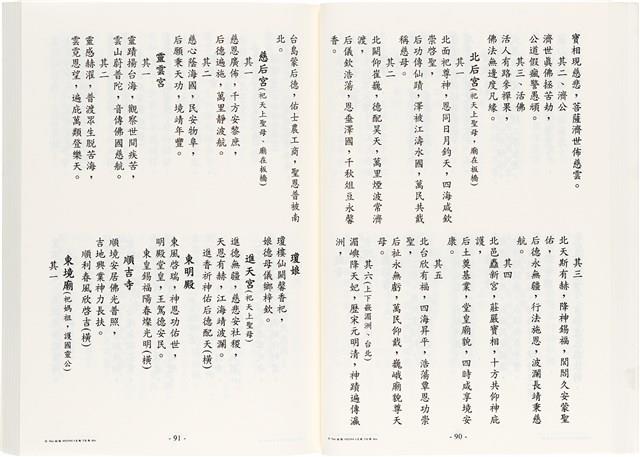 寶相現慈悲，菩薩濟世佈慈雲。
其二、濟公
濟世眞佛拯苦劫，
公道假瘋警愚頑。
其三、活佛
活人有路參禪果，
佛法無邊度凡緣。
北后宮(祀天上聖母，廟在板橋)
其一
北面祀尊神，恩同日月鈞天，四海咸欽
崇后聖，
后功傳仙蹟，澤被江濤水國，萬民共戴
稱慈母。
其二
北闕仰崔巍，德配昊天，萬里煙波常濟
渡，
后儀欽浩蕩，恩垂澤國，千秋俎豆永馨
香。
其三
北天斯有赫，降神錫福，閭閻久安蒙聖
佑，
后德永無疆，行法施恩，波瀾長靖秉慈
航。
其四
北邑矗新宮，莊嚴寶相，十方共仰神庇
護，
后土奠基業，堂皇廟貌，四時咸享境安
康。
其五
北台欣有福，四海昇平，浩蕩覃恩功崇
聖，
后祉永無虧，萬民仰戴，巍峨廟貌尊天
母。
其六(上下嵌湄洲、台北)
湄嶼降天妃，歷宋元明清，神蹟遍傳瀛
洲，
- 90 -
台島蒙后德，佑士農工商，聖恩普被南
北。
慈后宮(祀天上聖母、廟在板橋)
其一
慈恩廣佈，千方安黎庶，
后德遍施，萬里靜波航。
其二
慈心蔭海國，民安物阜，
后願秉天功，境靖年豐。
靈雲宮
其一
靈蹟揚台海，觀察世間疾苦，
雲山蔚普陀，音傳佛國慈航。
其二
靈感赫濯，普渡眾生脫苦海，
雲霓恩望，遍庇萬類登樂天。
瓊娘
瓊樓仙闕馨香祀，
娘德母儀鄉梓欽。
進天宮(祀天上聖母)
進德無疆，慈慈安社稷，
天恩有赫，江海靖波瀾。
進香祈神佑后德配天(橫)
東明殿
東風啓瑞，神恩功佑世，
明殿堂皇，王駕德安民。
東皇錫福陽春燦光明(橫)
順吉寺
順境安居佛光普照，
吉地興業神力長扶。
順利春風欣啓吉(橫)
東境廟(祀媽祖，護國靈公)
其一
- 91 -